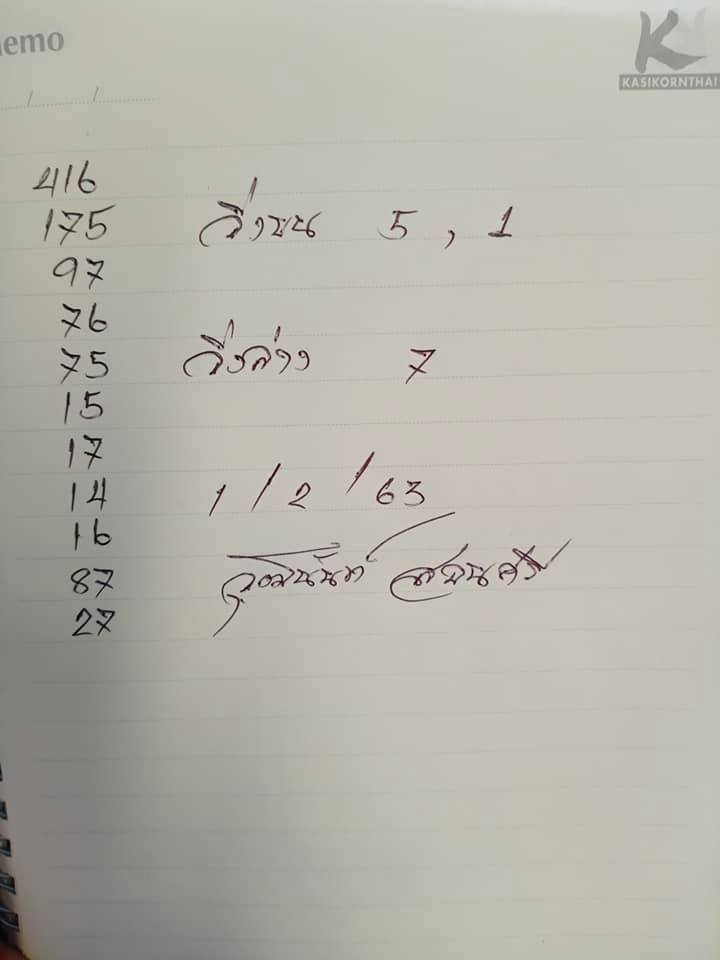 emo
KASIKORNTHAI
/ /
416
175 วิ่งบน 5 , 1
97
76
75 วิ่งล่าง 7
15
17
14 1 / 2 / 63
16
87
27